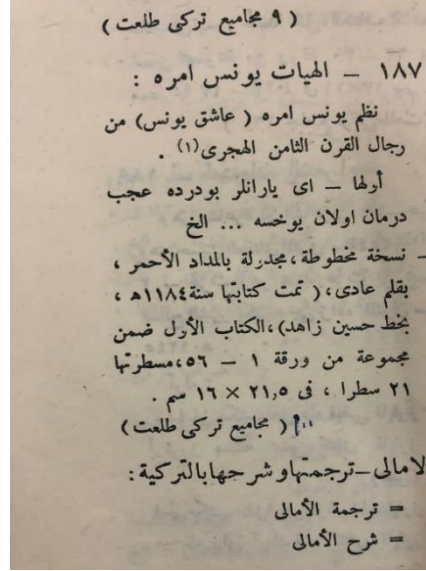 ( ٩ مجاميع تركى طلعت )
١٨٧ — الهيات يونس امره :
نظم يونس امره ( عاشق يونس) من
رجال القرن الثامن الهجرى(١) .
أولها — اى يارانلر بودرده عجب
درمان اولان يوخسه ... الخ
— نسخة مخطوطة ،مجدرلة بالمداد الأحمر ،
بقلم عادى، ( تمت كتابتها سنة ١١٨٤ه ،
بخط حسين زاهد) ،الكتاب الأول ضمن
مجموعة من ورقة ١ — ٥٦ ،مسطرتها
٢١ سطرا ، فى ٢١,٥ × ١٦ سم .
( مجاميع تركى طلعت )
لامالى_ترجمتهاو شرحهابالتركية :
= ترجمة الأمالى
= شرح الأمالى